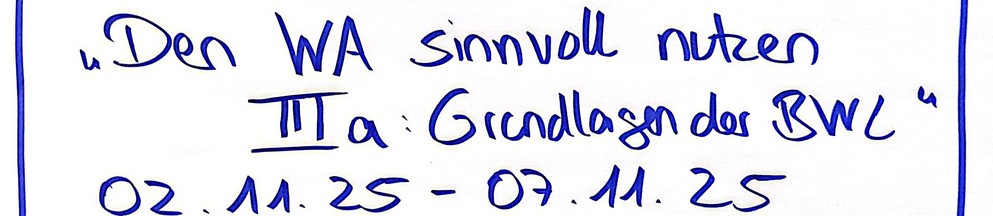 „Den WA sinnvoll nutzen
III a: Grundlagen der BWL“
02.11.25 - 07.11.25